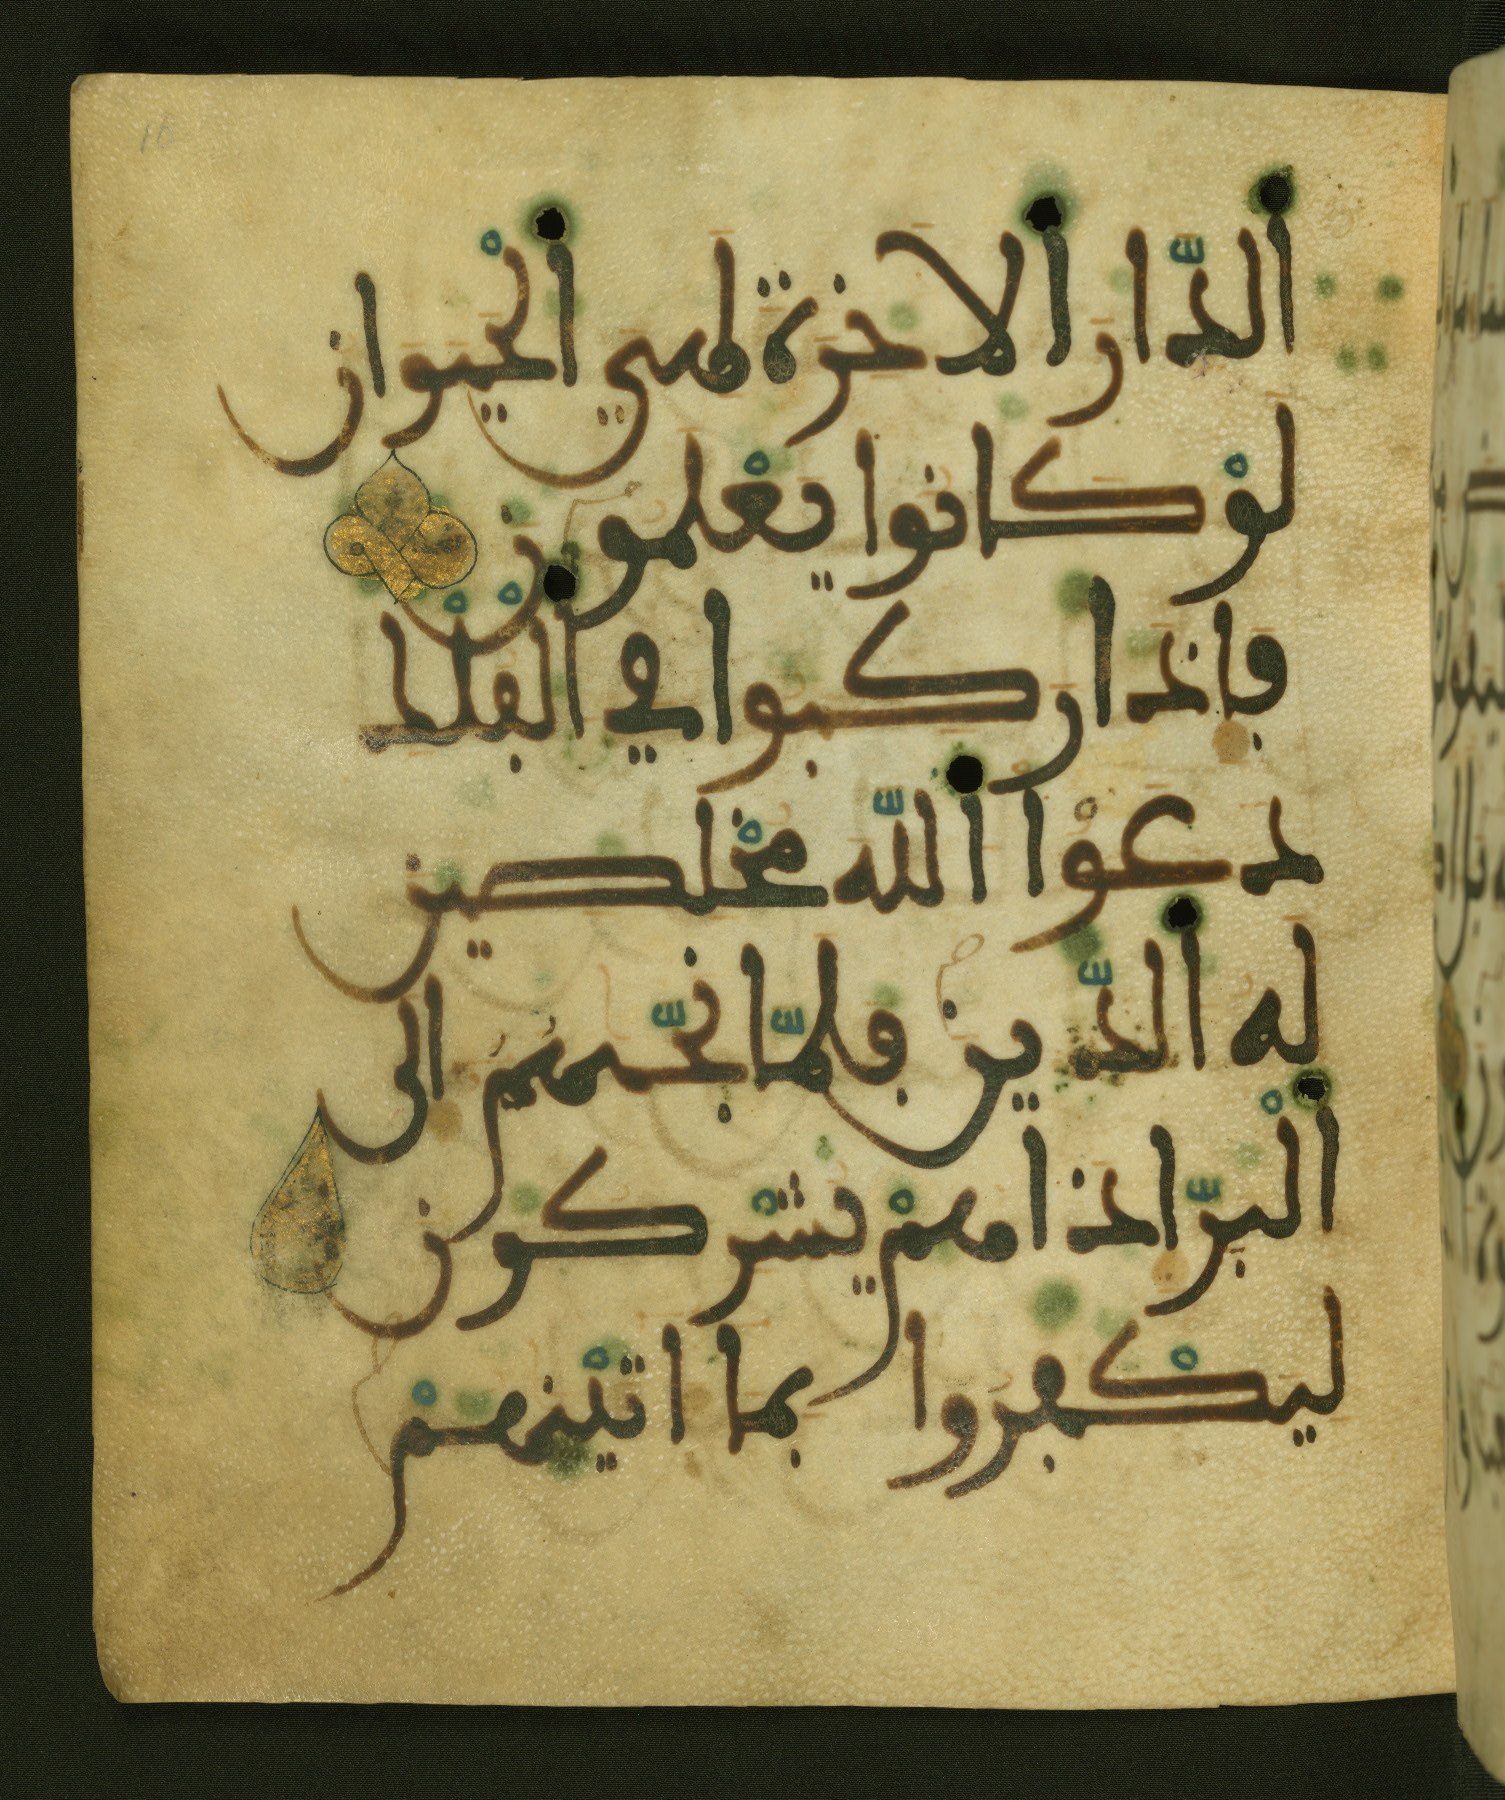 الدّار الاخرة لهي الحْيوان
لوْ كانوا يعْلمون
ڢاذا ركبوا ڢي الْڢلْك
دعوْا اللّه مخْلصين
له الذّين ڢلمّا نجّيهم الى
البرّ اذا همْ يشْركون
ليكْڢروا بما اتيْنهمْ